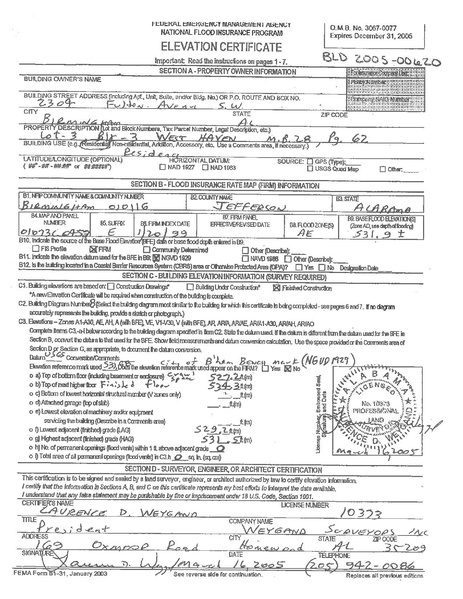 FEDERAL EMERGENCY MANAGEMENT AGENCY
NATIONAL FLOOD INSURANCE PROGRAM
ELEVATION CERTIFICATE
Important: Read the instructions on pages 1 - 7.
O.M.B. No. 3067-0077
Expires December 31, 2005
BLD 2005-00620
SECTION A - PROPERTY OWNER INFORMATION
BUILDING OWNER'S NAME
BUILDING STREET ADDRESS (Including Apt., Unit, Suite, and/or Bldg. No.) OR P.O. ROUTE AND BOX NO.
2304 Fulton Avenue S.W.
CITY STATE ZIP CODE
Birmingham AL
PROPERTY DESCRIPTION (Lot and Block Numbers, Tax Parcel Number, Legal Description, etc.)
Lot-3 Blk-3 West Haven M.B. 28, Pg. 62
BUILDING USE (e.g., Residential, Non-residential, Addition, Accessory, etc. Use a Comments area, if necessary.)
Residence
LATITUDE/LONGITUDE (OPTIONAL) HORIZONTAL DATUM: SOURCE: GPS (Type):
NAD 1927 NAD 1983 USGS Quad Map Other:
SECTION B - FLOOD INSURANCE RATE MAP (FIRM) INFORMATION
B1. NFIP COMMUNITY NAME & COMMUNITY NUMBER B2. COUNTY NAME B3. STATE
Birmingham 010116 Jefferson Alabama
B4. MAP AND PANEL NUMBER B5. SUFFIX B6. FIRM INDEX DATE B7. FIRM PANEL EFFECTIVE/REVISED DATE B8. FLOOD ZONE(S) B9. BASE FLOOD ELEVATION(S) (Zone AO, use depth of flooding)
E 1/20/99 AE 531.9 ±
B10. Indicate the source of the Base Flood Elevation (BFE) data or base flood depth entered in B9.
FIS Profile FIRM Community Determined Other (Describe):
B11. Indicate the elevation datum used for the BFE in B9: NGVD 1929 NAVD 1988 Other (Describe):
B12. Is the building located in a Coastal Barrier Resources System (CBRS) area or Otherwise Protected Area (OPA)? Yes No Designation Date
SECTION C - BUILDING ELEVATION INFORMATION (SURVEY REQUIRED)
C1. Building elevations are based on: Construction Drawings* Building Under Construction* Finished Construction
*A new Elevation Certificate will be required when construction of the building is complete.
C2. Building Diagram Number 8 (Select the building diagram most similar to the building for which this certificate is being completed - see pages 6 and 7. If no diagram
accurately represents the building, provide a sketch or photograph.)
C3. Elevations – Zones A1-A30, AE, AH, A (with BFE), VE, V1-V30, V (with BFE), AR, AR/A, AR/AE, AR/A1-A30, AR/AH, AR/AO
Complete Items C3.-a-i below according to the building diagram specified in Item C2. State the datum used. If the datum is different from the datum used for the BFE in
Section B, convert the datum to that used for the BFE. Show field measurements and datum conversion calculation. Use the space provided or the Comments area of
Section D or Section G, as appropriate, to document the datum conversion.
Datum USGS Conversion/Comments City of B'ham Bench mark (NGVD 1929)
Elevation reference mark used Does the elevation reference mark used appear on the FIRM? Yes No
a) Top of bottom floor (including basement or enclosure) ft.(m)
b) Top of next higher floor Finished floor 534.3 ft.(m)
c) Bottom of lowest horizontal structural member (V zones only) ft.(m)
d) Attached garage (top of slab) ft.(m)
e) Lowest elevation of machinery and/or equipment
servicing the building (Describe in a Comments area) ft.(m)
f) Lowest adjacent (finished) grade (LAG) 529.2 ft.(m)
g) Highest adjacent (finished) grade (HAG) 531.5 ft.(m)
h) No. of permanent openings (flood vents) within 1 ft. above adjacent grade 0
i) Total area of all permanent openings (flood vents) in C3.h 0 sq. in. (sq. cm)
License Number, Embossed Seal, Signature, and Date
ALABAMA
LICENSED
No. 10373
PROFESSIONAL
LAND SURVEYOR
LAURENCE D. WEYGAND
March 16, 2005
SECTION D - SURVEYOR, ENGINEER, OR ARCHITECT CERTIFICATION
This certification is to be signed and sealed by a land surveyor, engineer, or architect authorized by law to certify elevation information.
I certify that the information in Sections A, B, and C on this certificate represents my best efforts to interpret the data available.
I understand that any false statement may be punishable by fine or imprisonment under 18 U.S. Code, Section 1001.
CERTIFIER'S NAME LICENSE NUMBER
Laurence D. Weygand 10373
TITLE COMPANY NAME
President Weygand Surveyors Inc
ADDRESS CITY STATE ZIP CODE
169 Oxmoor Road Homewood AL 35209
SIGNATURE DATE TELEPHONE
March 16, 2005 (205) 942-0086
FEMA Form 81-31, January 2003 See reverse side for continuation. Replaces all previous editions